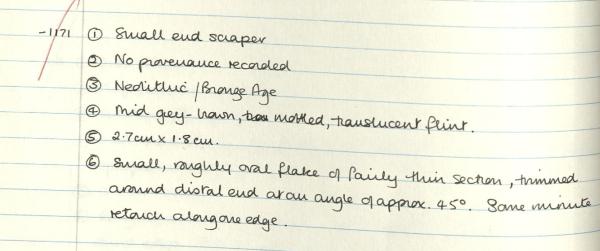 -1171 ① Small end scraper
② No provenance recorded
③ Neolithic / Bronze Age
④ Mid grey-brown, mottled, translucent flint.
⑤ 2.7cm x 1.8cm.
⑥ Small, roughly oval flake of fairly thin section, trimmed
around distal end at an angle of approx. 45°. Some minute
retouch along one edge.